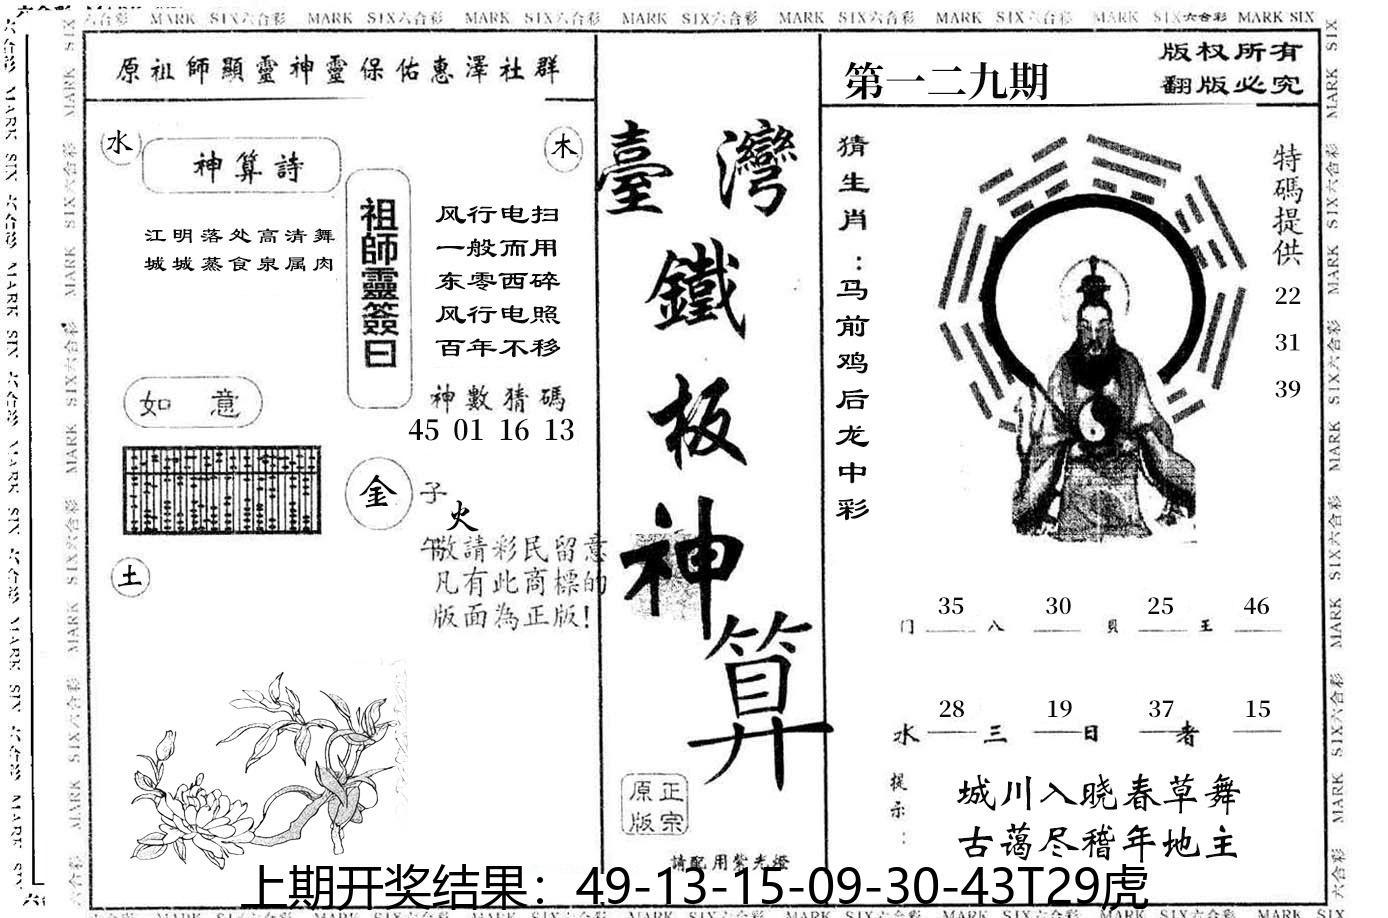 MARK SIX六合彩 MARK SIX六合彩 MARK SIX六合彩 MARK SIX六合彩 MARK SIX六合彩 MARK SIX六合彩 MARK SIX六合彩 MARK SIX
原祖師顯靈神靈保佑惠澤社群
水
神算詩
木
江明落处高清舞
城城蒸食泉属肉
祖師靈簽曰
风行电扫
一般而用
东零西碎
风行电照
百年不移
神數猜碼
45 01 16 13
如 意
金
子
火
午
敬請彩民留意
凡有此商標的
版面為正版!
土
臺灣
鐵
板
神
算
正宗
原版
請配用紫光燈
第一二九期
版权所有
翻版必究
猜生肖:马前鸡后龙中彩
特碼提供
22
31
39
35 30 25 46
门 八 貝 王
28 19 37 15
水 三 日 者
提示:
城川入晓春草舞
古蔼尽稽年地主
上期开奖结果：49-13-15-09-30-43T29虎